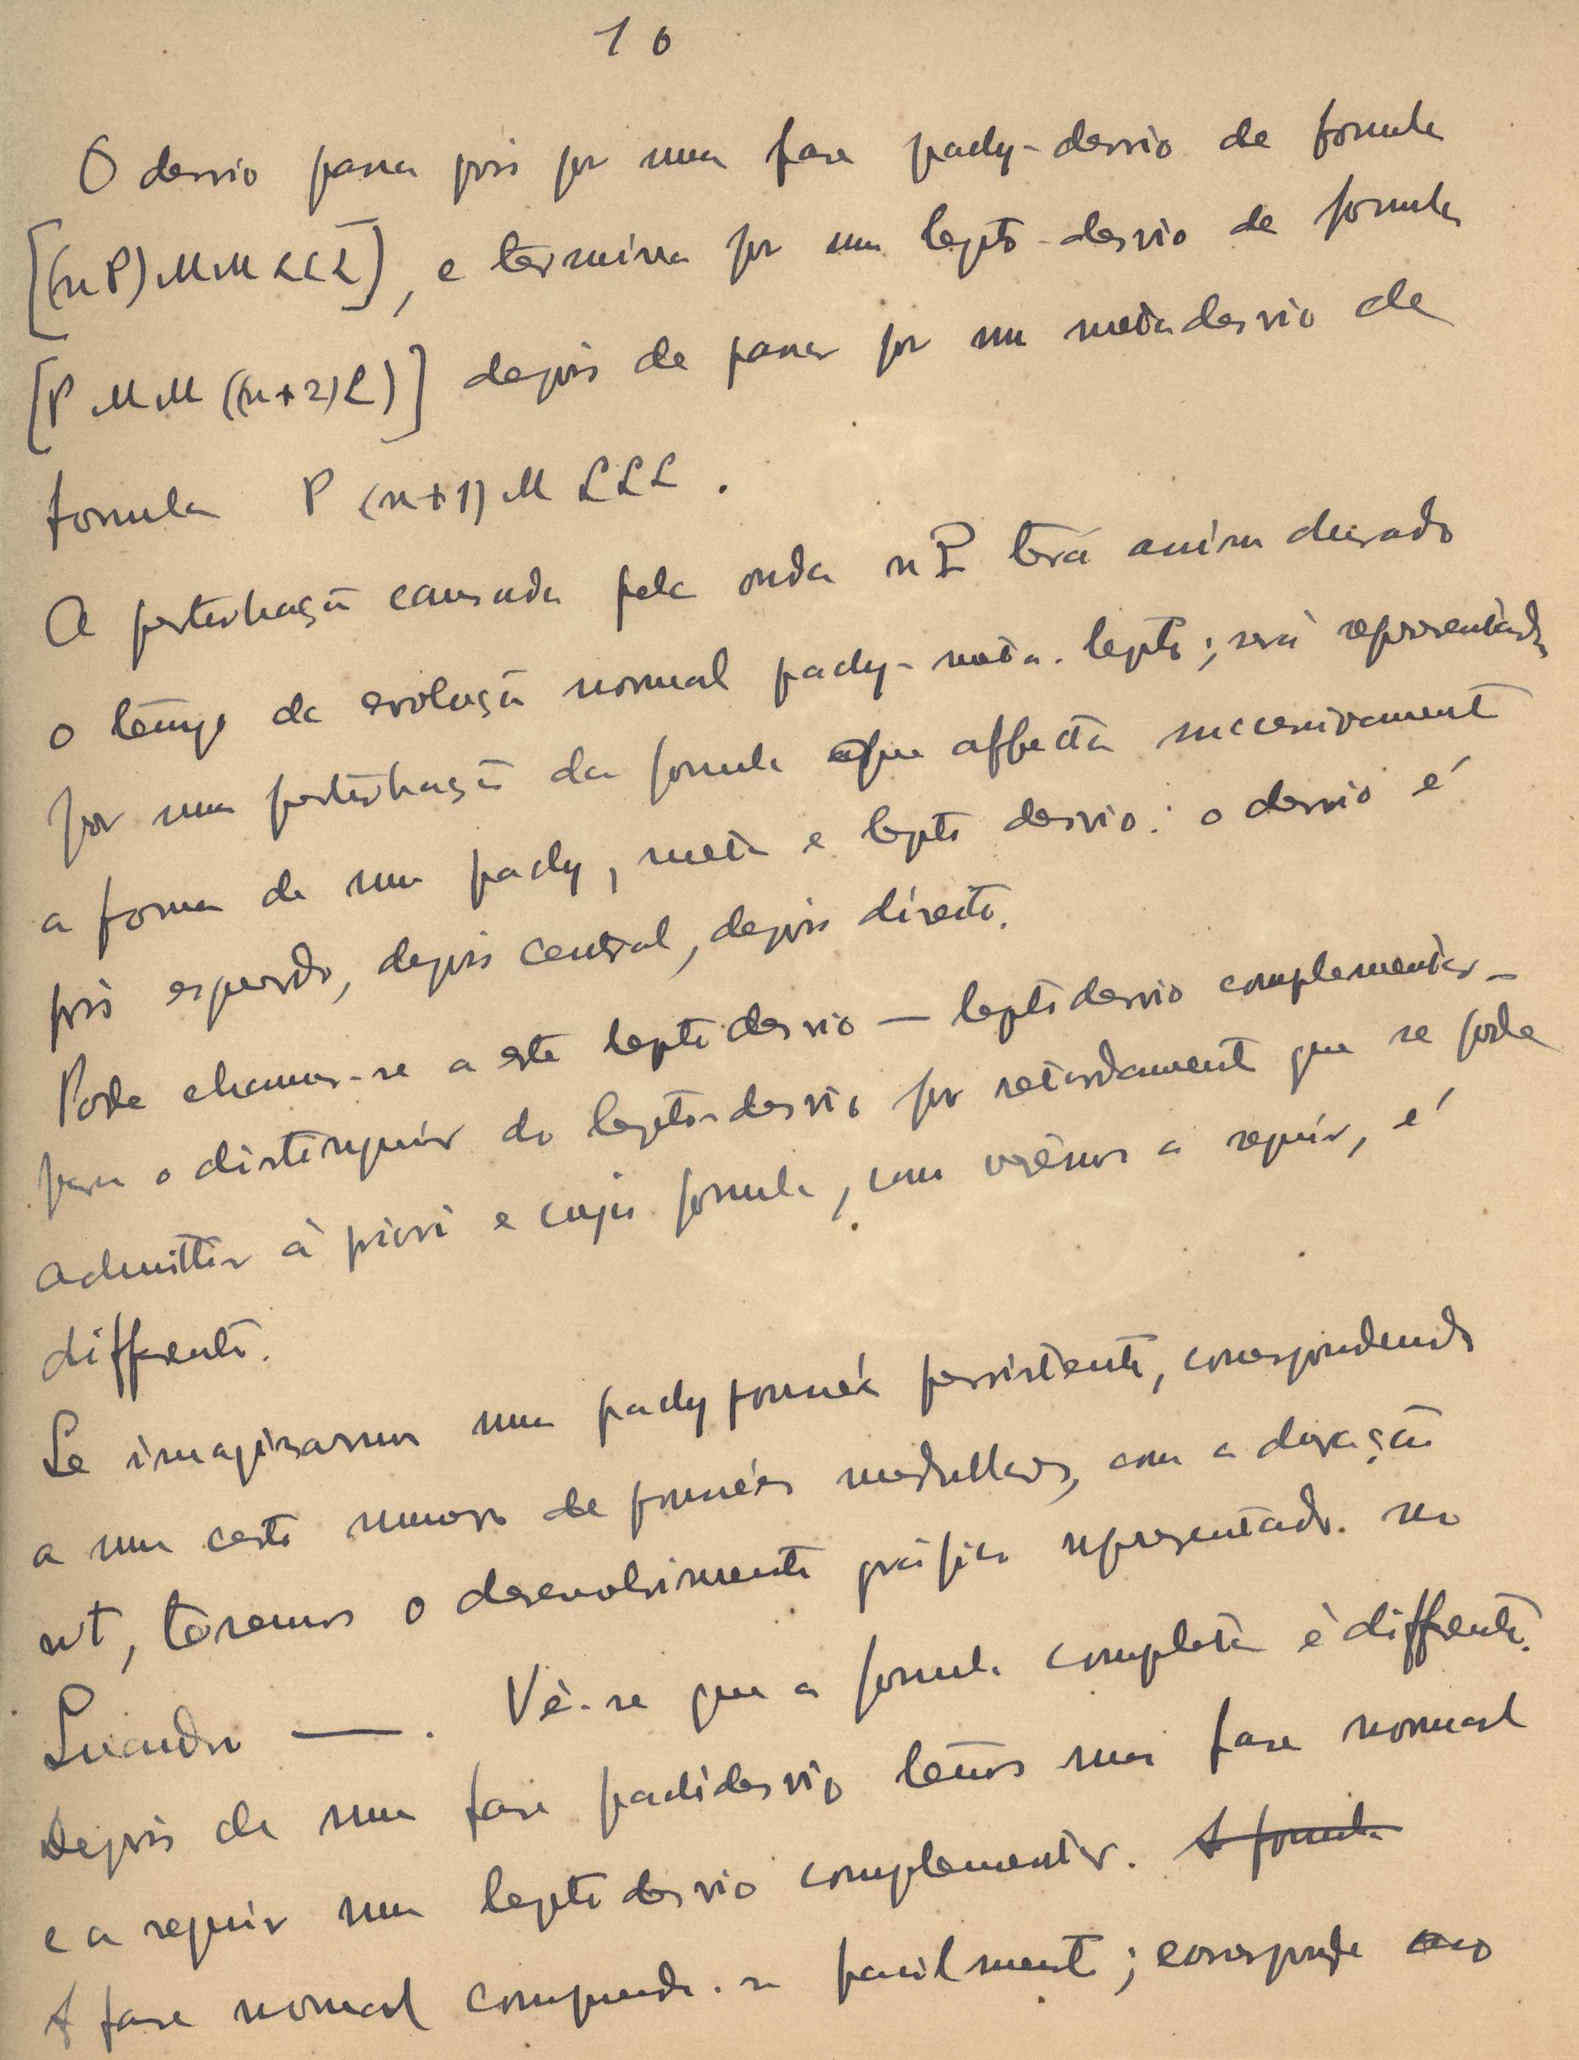 10
O desvio passa pois por uma fase pachy-desvio de formula
[(nP) MM LLL], e termina por um lepto-desvio de formula
[P MM ((n+2)L)] depois de passar por um metadesvio de
formula P (n+1) M LLL.
A perturbação causada pela onda nP terá assim durado
o tempo da evolução normal pachy-meta-lepto; será representada
por uma perturbação da formula que affecta successivamente
a forma de um pachy, meta e lepto desvio: o desvio é
pois esquerdo, depois central, depois direito.
Pode chamar-se a este leptodesvio — leptodesvio complementar —
para o distinguir do lepto-desvio por retardamento que se pode
admittir à priori e cuja formula, como verêmos a seguir, é
differente.
Se imaginarmos uma pachy persistente, correspondendo
a um certo numero de medullares, com a duração
nt, teremos o desenvolvimento gráfico representado no
Quadro —. Vê-se que a formula completa é differente.
Depois de uma fase pachidesvio temos uma fase normal
e a seguir um leptodesvio complementar. A formula
A fase normal comprende-se facilmente; corresponde ao